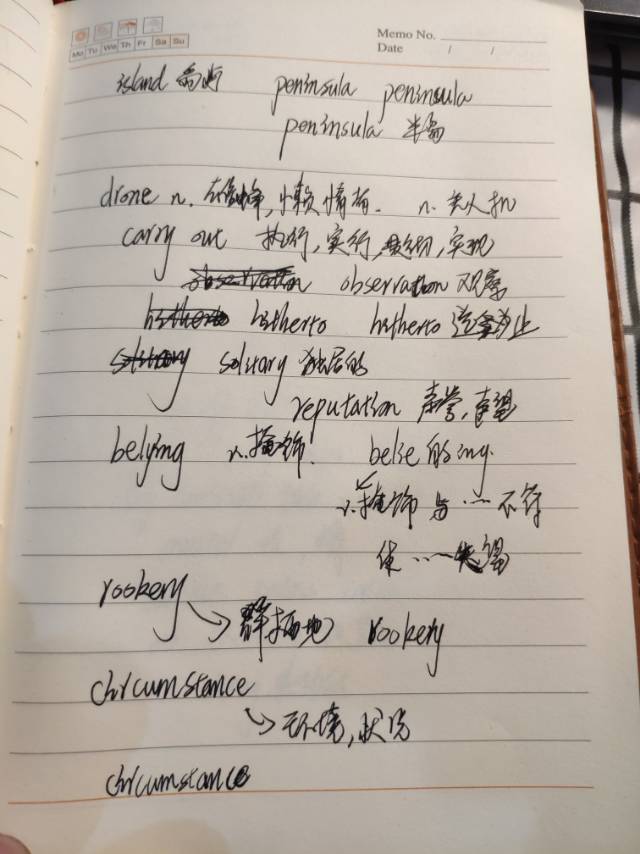 Mo Tu We Th Fr Sa Su
Memo No.
Date / /
island 岛屿 peninsula peninsula
peninsula 半岛
drone n. 雄蜂, 懒惰者. n. 无人机
carry out 执行, 实行, 贯彻, 实现
observation observation 观察
hitherto hitherto hitherto 迄今为止
solitary solitary 独居的
reputation 声誉, 声望
belying n. 掩饰! belie 的 ing.
v. 掩饰 与 … 不符
使 … 失望
rookery
群栖地 rookery
chrcumstance
环境, 状况
chrcumstance